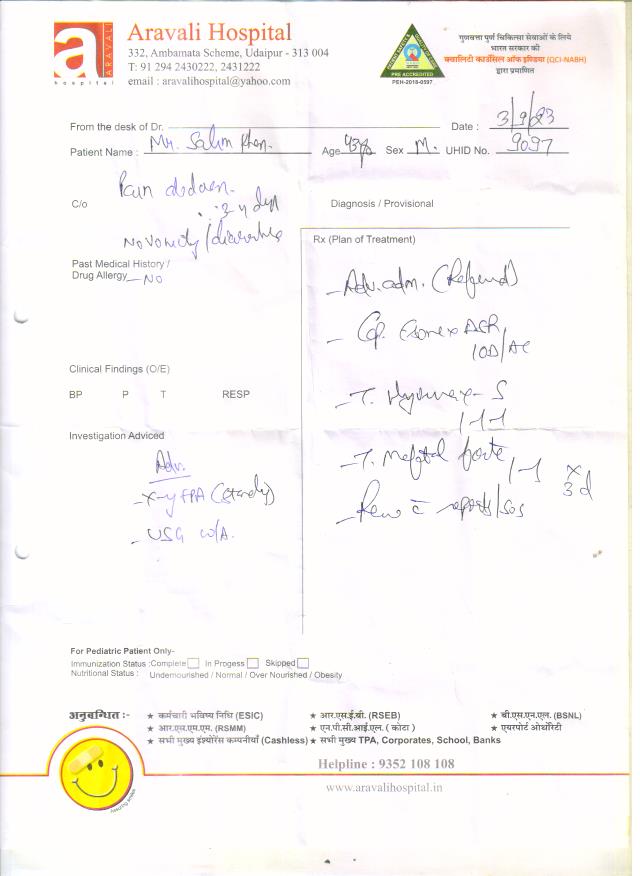 ARAVALI
hospital
Aravali Hospital
332, Ambamata Scheme, Udaipur - 313 004
T: 91 294 2430222, 2431222
email : aravalihospital@yahoo.com
PRE ACCREDITED
PEH-2018-0597
गुणवत्ता पूर्ण चिकित्सा सेवाओं के लिये
भारत सरकार की
क्वालिटी काउंसिल ऑफ इण्डिया (QCI-NABH)
द्वारा प्रमाणित
From the desk of Dr. Date : 3/9/23
Patient Name : Mr. Salim Khan. Age 43y Sex M. UHID No. 9097
C/o Pain abdomen.
No Vomiting / diarrhea
Diagnosis / Provisional
Past Medical History /
Drug Allergy - NO
Clinical Findings (O/E)
BP P T RESP
Investigation Adviced
Adv.
- X-ray FPA (Standing)
- USG w/A.
Rx (Plan of Treatment)
- Adv. adm. (Refused)
- Cap. Esonex
1OD/AC
- T. S
1-1-1
- T. Meftal forte 1-1 x 3d
- Rev c̄ reports/sos
For Pediatric Patient Only-
Immunization Status :Complete In Progess Skipped
Nutritional Status : Undernourished / Normal / Over Nourished / Obesity
अनुबन्धित :-
★ कर्मचारी भविष्य निधि (ESIC) ★ आर.एस.ई.बी. (RSEB) ★ बी.एस.एन.एल. (BSNL)
★ आर.एस.एम.एम. (RSMM) ★ एन.पी.सी.आई.एल. ( कोटा ) ★ एयरपोर्ट ऑथोरिटी
★ सभी मुख्य इंश्योरेंस कम्पनीयाँ (Cashless) ★ सभी मुख्य TPA, Corporates, School, Banks
Helpline : 9352 108 108
www.aravalihospital.in